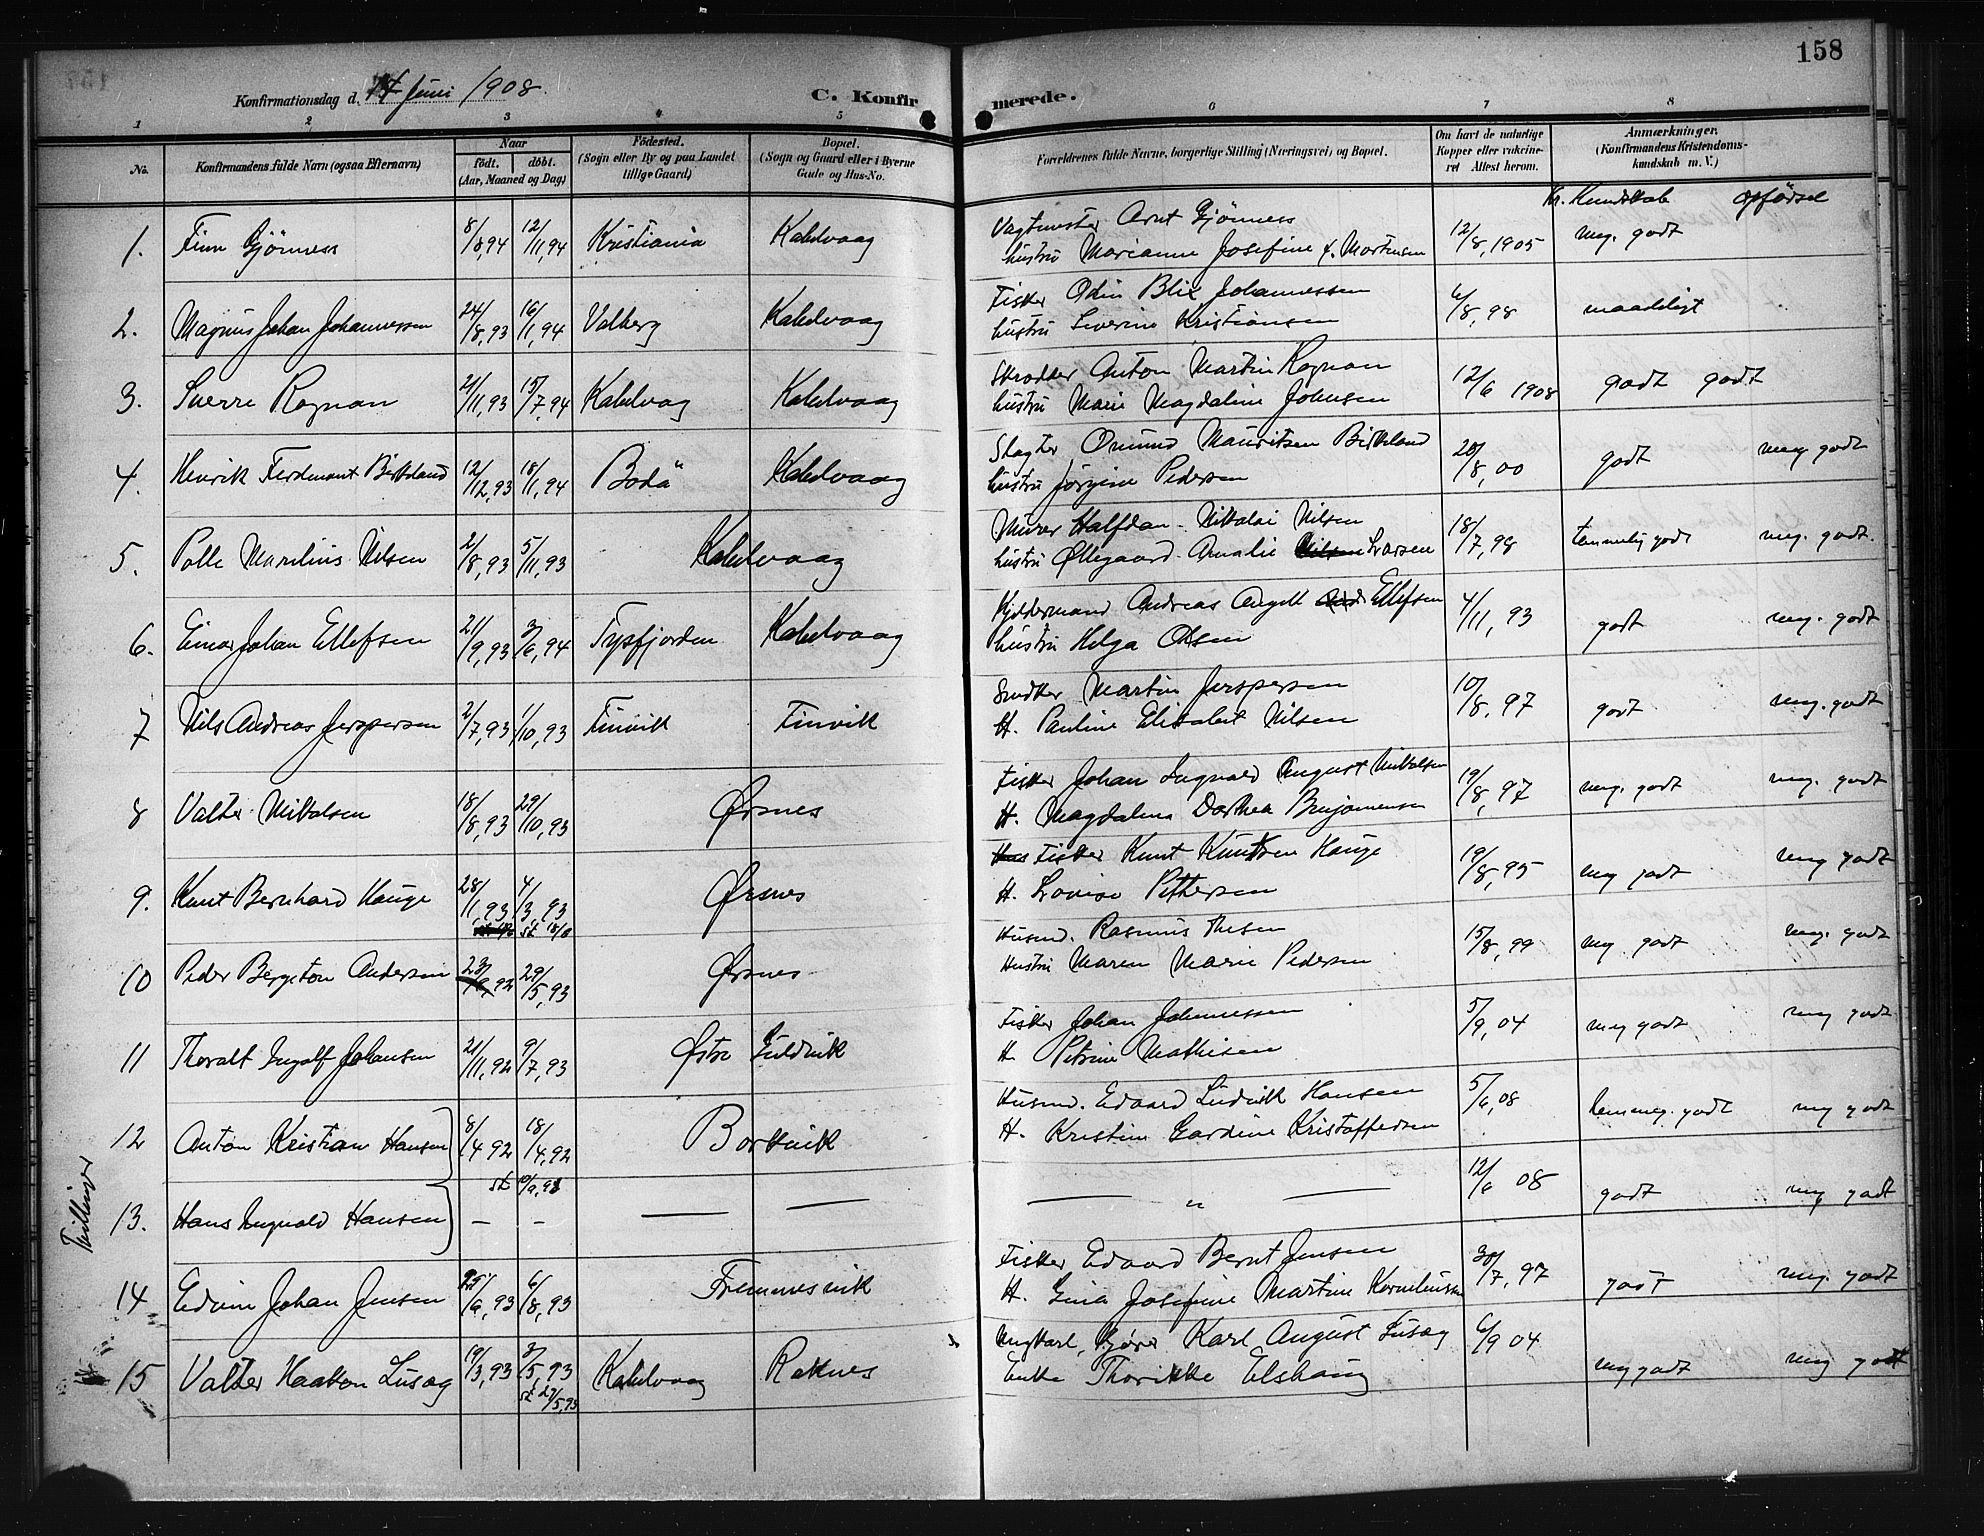 158
Konfirmationsdag d. 14 Juni 1908.
C. Konfirmerede.
1 2 3 4 5 6 7 8
No.
Konfirmandens fulde Navn (ogsaa Efternavn)
Naar
født. døbt.
(Aar, Maaned og Dag)
Födested.
(Sogn eller By og paa Landet
tillige Gaard)
Bopæl.
(Sogn og Gaard eller i Byerne
Gade og Hus-No.
Forældrenes fulde Navne, borgerlige Stilling (Næringsvei) og Bopæl.
Om havt de naturlige
Kopper eller vakcine-
ret Attest herom.
Anmærkninger.
(Konfirmandens Kristendoms-
kundskab m. V.)
Kr. Kundskab opførsel
1. Finn Gjönness 8/8,94 12/11,94 Kristiania Kabelvaag Vagtmester Arnt Gjönness 12/8,1905 meg. godt
hustru Marianne Josefine f. Mortensen
2. Magnus Johan Johannessen 24/8,93 16/1,94 Valberg Kabelvaag Fisker Odin Blix Johannessen 6/8,98 maadeligt
hustru Severine Kristiansen
3. Sverre Rognan 2/11,93 15/7,94 Kabelvag Kabelvaag Skrædder Anton Martin Rognan 12/6 1908 godt godt
hustru Marie Magdaline Johnsen
4. Henrik Ferdinant Birkeland 12/12,93 18/11,94 Bodö Kabelvaag Slagter Omund Mauritsen Birkeland 20/8,00 godt meg godt
hustru Jørgine Pedersen
5. Palle Marelius Nilsen 2/8,93 5/11,93 Kabelvaag Murer Halfdan Nikolai Nilsen 18/7,98 temmelig godt meg. godt.
hustru Øllegaard Amalie Larsen
6. Einar Johan Ellefsen 21/9,93 3/6,94 Tysfjorden Kabelvaag Kjeldermand Andreas Angell Ellefsen 4/11,93 godt meg. godt
hustru Helga Olsen
7 Nils Andreas Jerspersen 2/7,93 1/10,93 Finvik Finvik Snedker Martin Jerspersen 10/8,97 godt meg. godt
H. Pauline Elisabet Nilsen
8 Valter Mikalsen 18/8,93 29/10,93 Ørsnes Fisker Johan Ingvald August Mikalsen 19/8,97 meg. godt meg. godt
H. Magdalena Dorthea Benjamensen
9. Knut Bernhard Hauge 28/1,93 4/3,93 Ørsnes Fisker Knut Knutsen Hauge 19/8,95 meg godt meg godt
H. Lovise Pettersen
10 Peder Bergeton Andersen 23/ ,92 29/5,93 Ørsnes Husmd. Rasmus 15/8,99 meg godt meg. godt
Hustru Maren Marie Pedersen
11 Thoralf Ingolf Johansen 21/11,92 9/7,93 Østre Fisker Johan Johannessen 5/9,04 meg godt meg godt
H Petrine Mathisen
12 Anton Kristian Hansen 8/4 92 18/4,92 Borkvik Husmd. Edvard Ludvik Hansen 5/6,08 temmeg. godt meg godt
H. Kristine Gardine Kristoffersen
Tvillinger
13. Hans Ingvald Hansen – – — — — „ — 12/6 08 godt meg godt
14 Edvin Johan Jensen 25/6,93 6/8,93 Fremnesvik Fisker Edvard Bernt Jensen 30/7,97 godt meg. godt
H. Gina Josefine Martine Kornelinssen
15 Valter Haakon Lusæg 19/3,93 3/5,93 Kabelvaag Raknes Ungkarl, Karl August Lusæg 6/9 04 meg godt meg godt
Enke Thorikke Elshaug